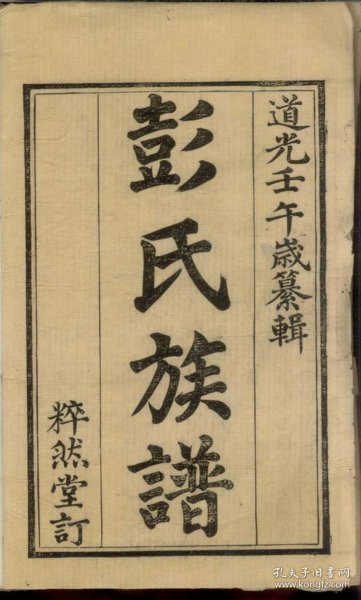 道光壬午歲纂輯
彭氏族譜
粹然堂訂
孔夫子旧书网
www.kongfz.com